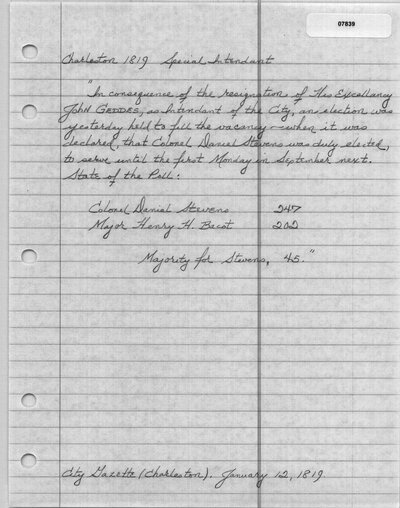 07839
Charleston 1819 Special Intendant
"In consequence of the resignation of His Excellency
JOHN GEDDES, as Intendant of the City, an election was
yesterday held to fill the vacancy—when it was
declared, that Colonel Daniel Stevens was duly elected,
to serve until the first Monday in September next.
State of the Poll:
Colonel Daniel Stevens 247
Major Henry H. Bacot 202
Majority for Stevens, 45."
City Gazette (Charleston). January 12, 1819.